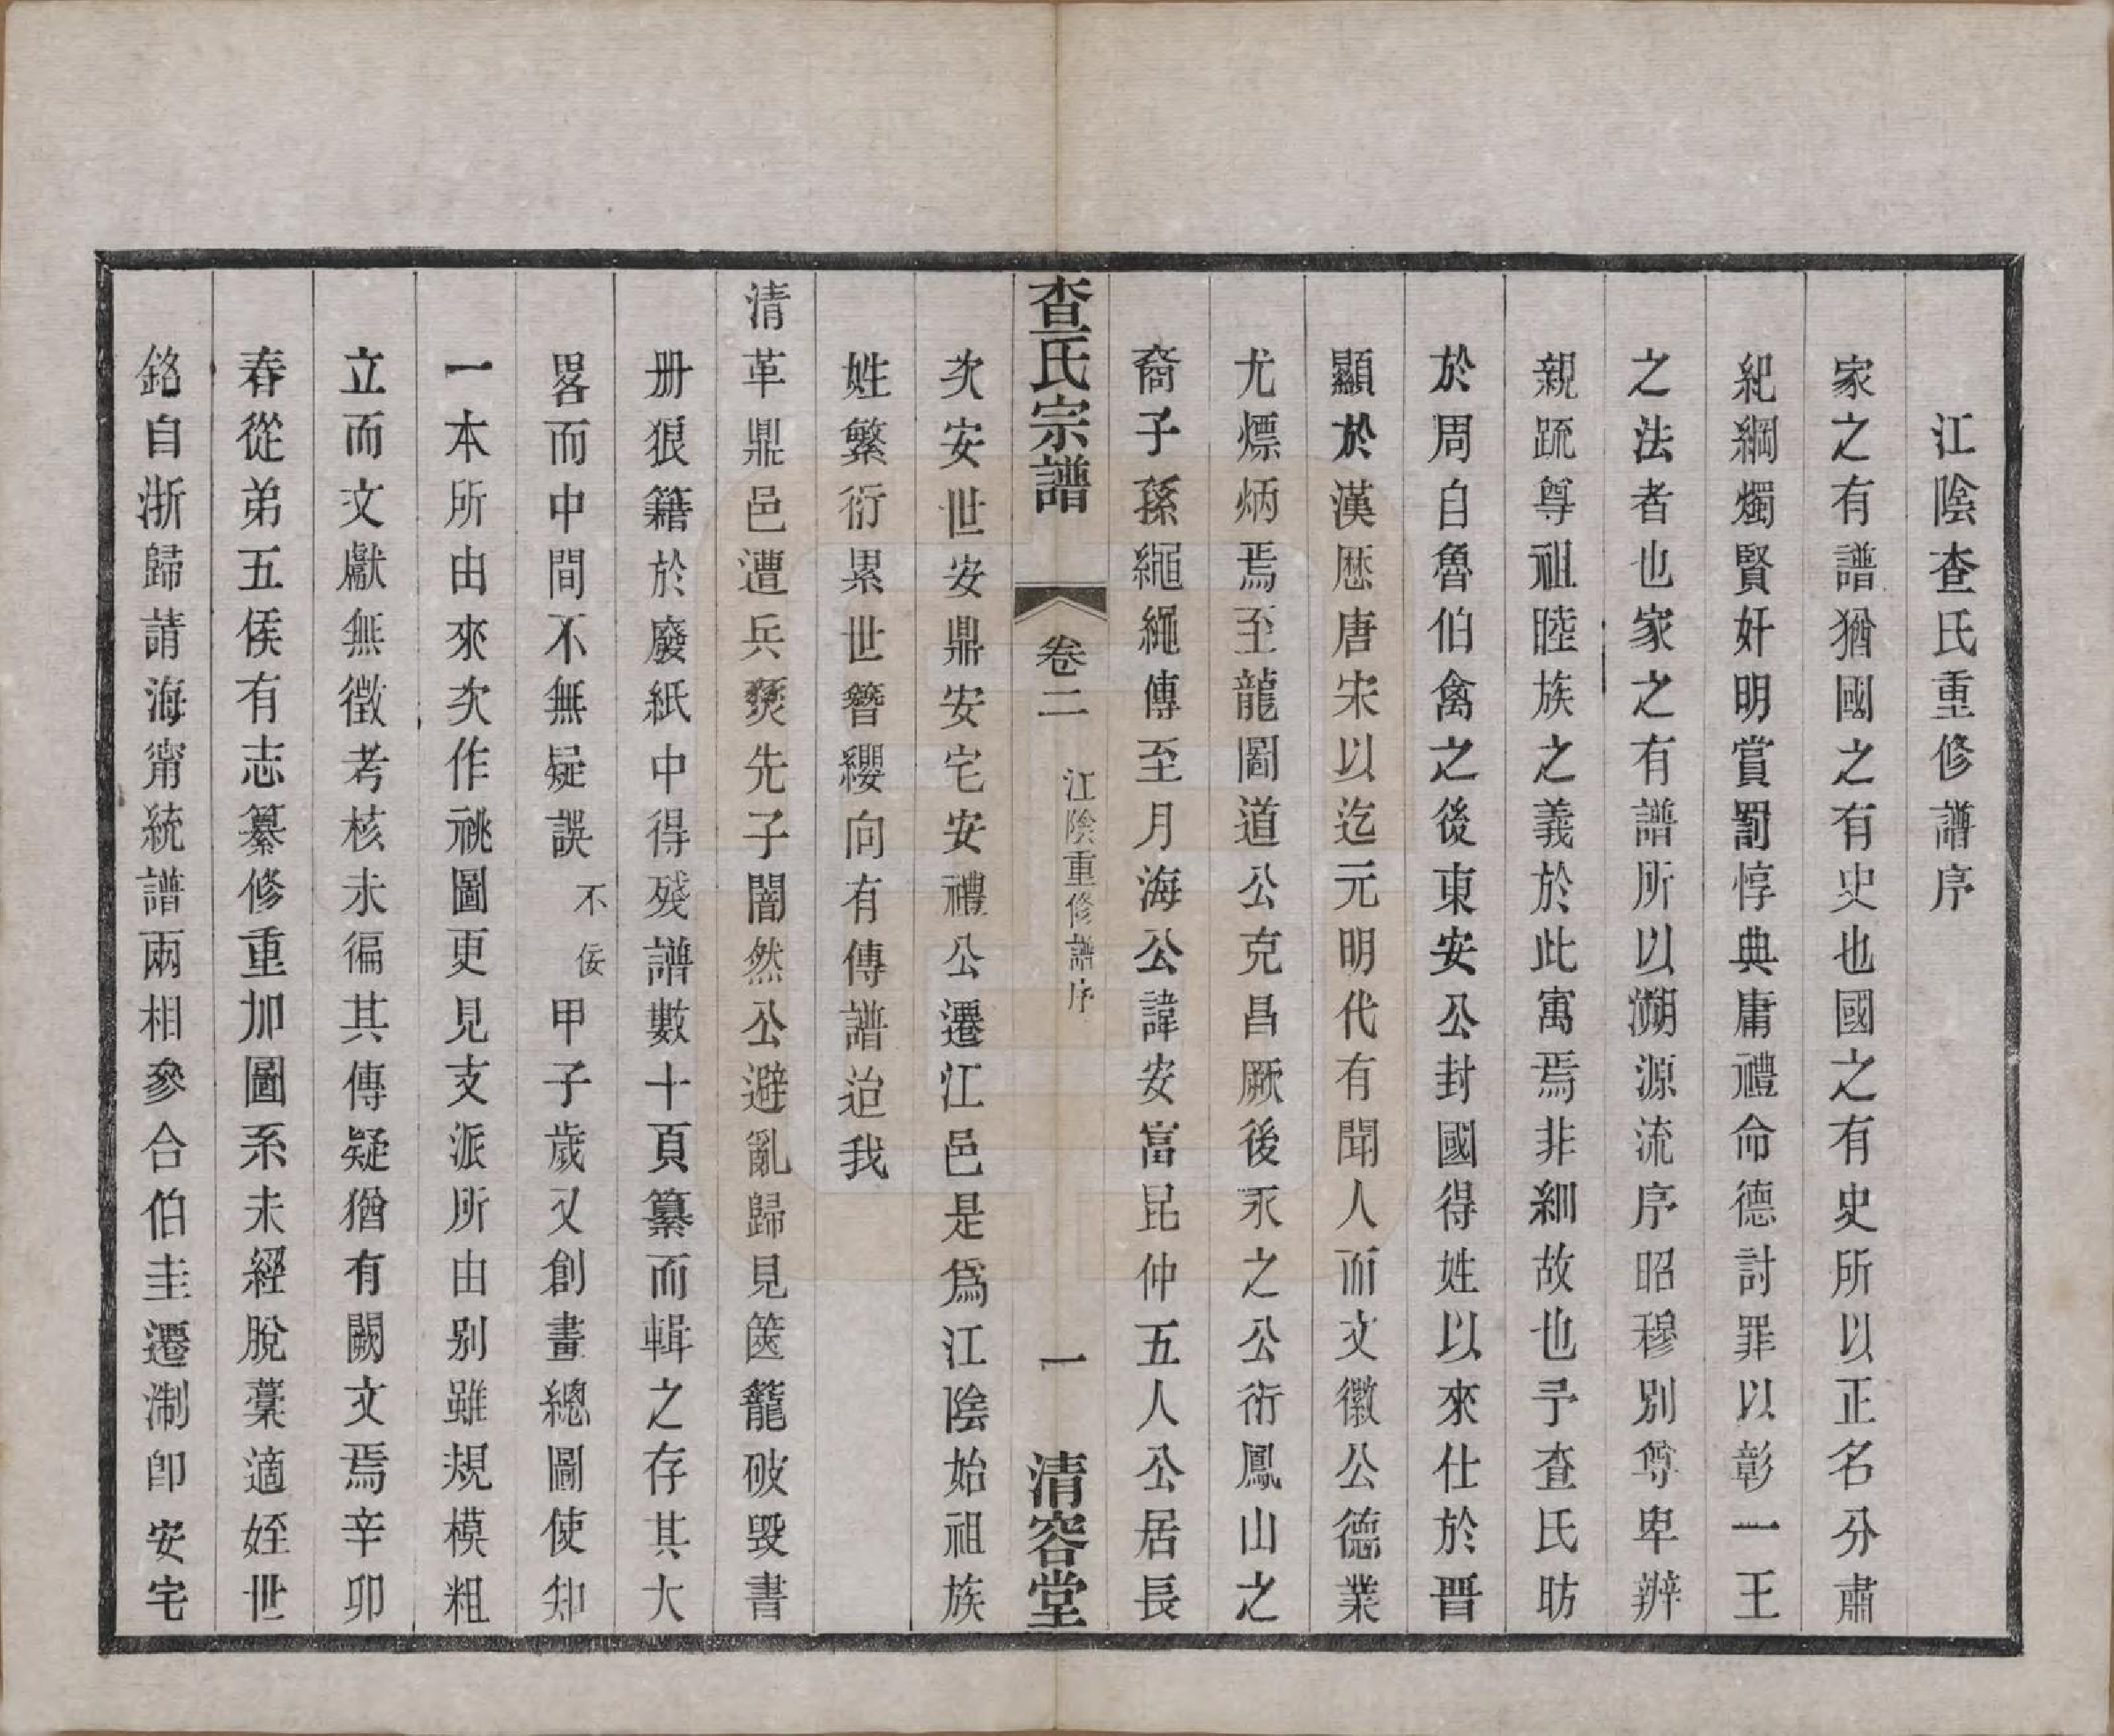 江陰查氏重修譜序
家之有譜猶國之有史也國之有史所以正名分肅
紀綱燭賢奸明賞罰惇典庸禮命德討罪以彰一王
之法者也家之有譜所以溯源流序昭穆別尊卑辨
親疏尊祖睦族之義於此寓焉非細故也予查氏昉
於周自魯伯禽之後東安公封國得姓以來仕於晉
顯於漢歷唐宋以迄元明代有聞人而文徽公德業
尤熛炳焉至龍圖道公克昌厥後永之公衍鳳山之
裔子孫繩繩傳至月海公諱安富昆仲五人公居長
查氏宗譜
卷二
江陰重修譜序
一
清容堂
次安世安鼎安宅安禮公遷江邑是爲江陰始祖族
姓繁衍累世簪纓向有傳譜迨我
清革鼎邑遭兵燹先子闇然公避亂歸見篋籠破毀書
册狠籍於廢紙中得殘譜數十頁纂而輯之存其大
畧而中間不無疑誤不佞甲子歲又創畫總圖使知
一本所由來次作祧圖更見支派所由别雖規模粗
立而文獻無徵考核未徧其傳疑猶有闕文焉辛卯
春從弟五侯有志纂修重加圖系未經脫藁適姪世
銘自浙歸請海甯統譜兩相參合伯圭遷淛卽安宅